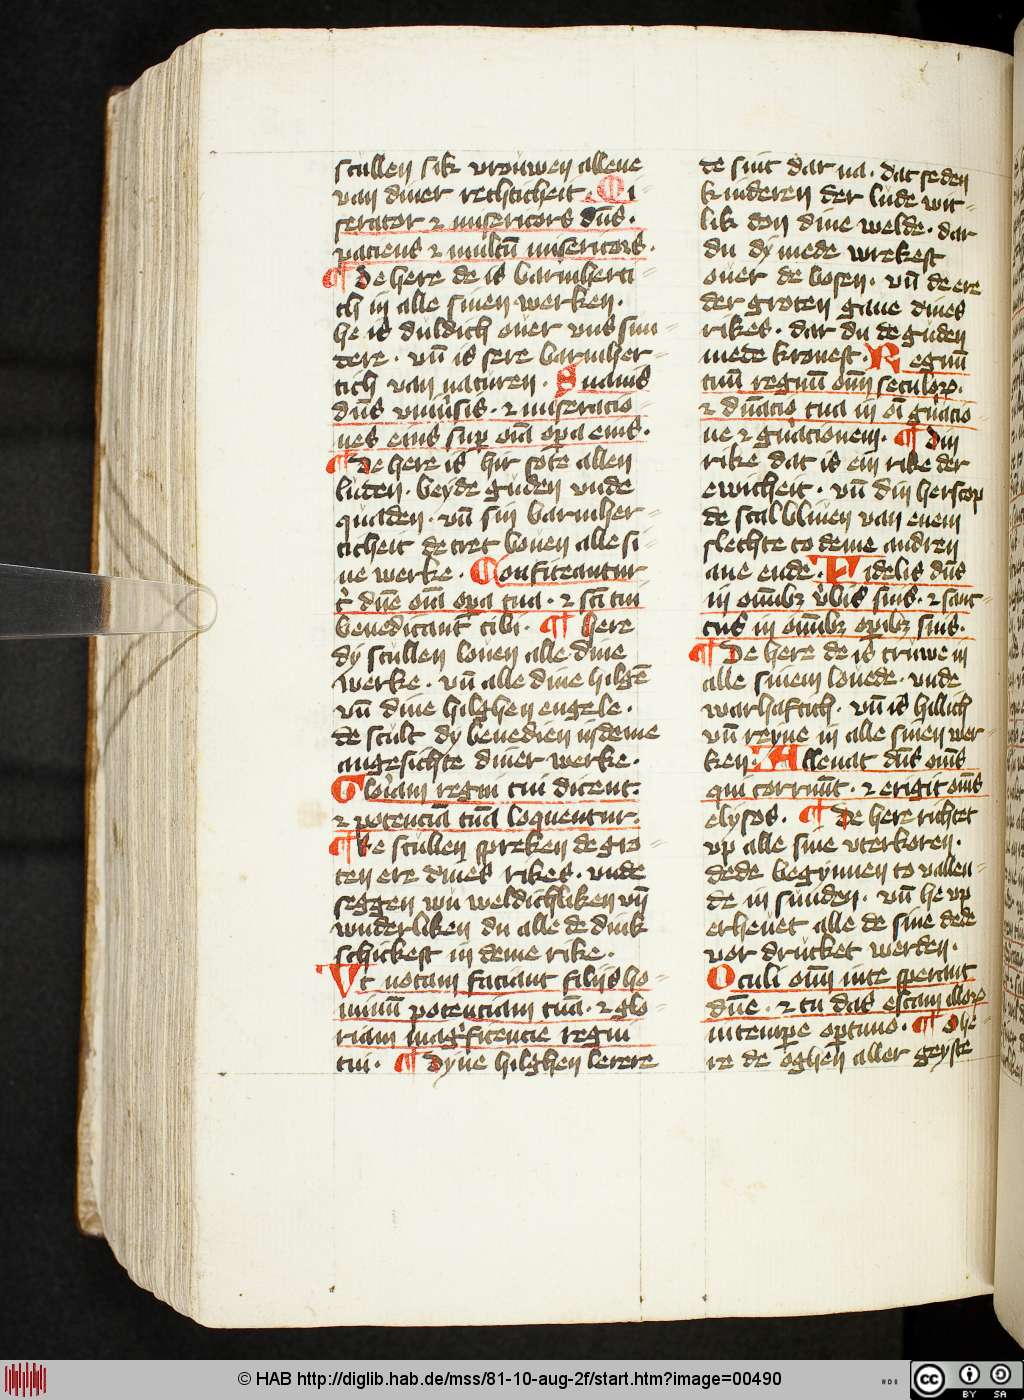 scullen sik vrouwen allene
van diner rechticheit. Mi
serator ⁊ misericors dn̄s.
paciens ⁊ multū misericors.
¶ De here de is barmherti
ch in alle sinen werken.
he is duldich ouer vns sun
dere. vn̄ is sere barmher
tich van naturen. Suauis
dn̄s vniūsis. ⁊ miseracio
nes eius suꝑ oīa oꝑa eius.
¶ De here is hir sote allen
luden. beyde guden vnde
quaden. vn̄ sin barmher
ticheit de tret bouen alle si
ne werke. Confiteantur
t' dn̄e oīa oꝑa tua. ⁊ scī tui
benedicant tibi. ¶ here
dy scullen louen alle dine
werke. vn̄ alle dine hilgē
vn̄ dine hilghen engele.
de scult dy benedien in deme
angesichte diner werke.
Gloriam regni tui dicent.
⁊ potenciā tuā loquentur.
¶ Se scullen spreken de gro
ten ere dines rikes. vnde
seggen wu weldichliken vn̄
wnderliken du alle de dink
schickest in deme rike.
Vt notam faciant filijs ho
minū potenciam tuā. ⁊ glo
riam magnificencie regni
tui. ¶ Dyne hilghen lerere
de sint dar na. dat se den
kinderen der lude wit
lik don dine welde. dar
du dy mede wrekest
ouer de bosen. vn̄ de ere
der groten gaue dines
rikes. dar du de guden
mede kronest. Regnū
tuū regnū oīm seculoꝝ.
⁊ dn̄acio tua in oī gn̄acio
ne ⁊ gn̄acionem. ¶ Din
rike dat is ein rike der
ewicheit. vn̄ din herscop
de scal bliuen van enem
slechte to deme andren
ane ende. Fidelis dn̄s
in omībꝫ v'bis suis. ⁊ sanc
tus in omībꝫ oꝑibꝫ suis.
¶ De here de is truwe in
alle sinem louede. vnde
warhaftich. vn̄ is hillich
vn̄ reyne in alle sinen wer
ken. Alleuat dn̄s om̄s
qui corruūt. ⁊ erigit om̄s
elysos. ¶ De here richtet
vp alle sine vterkoren.
dede begynnen to vallen
de in sunden. vn̄ he vp
erheuet alle de sine dede
vor drucket werden.
Oculi oīm in te sperant
dn̄e. ⁊ tu das escam illoꝝ
in tempe optuno. ¶ O he
re de oghen aller geyste
© HAB http://diglib.hab.de/mss/81-10-aug-2f/start.htm?image=00490
cc BY SA